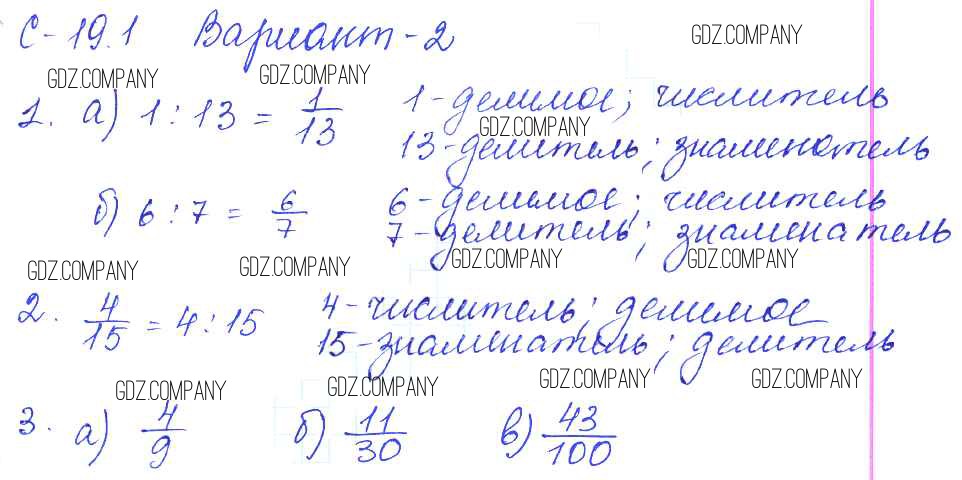 С-19.1 Вариант-2
GDZ.COMPANY
GDZ.COMPANY GDZ.COMPANY
1. а) 1 : 13 = 1/13 1-делимое; числитель
GDZ.COMPANY
13-делитель; знаменатель
б) 6 : 7 = 6/7 6-делимое; числитель
7-делитель; знаменатель
GDZ.COMPANY GDZ.COMPANY GDZ.COMPANY GDZ.COMPANY
2. 4/15 = 4 : 15 4-числитель; делимое
15-знаменатель; делитель
GDZ.COMPANY GDZ.COMPANY GDZ.COMPANY GDZ.COMPANY
3. а) 4/9 б) 11/30 в) 43/100